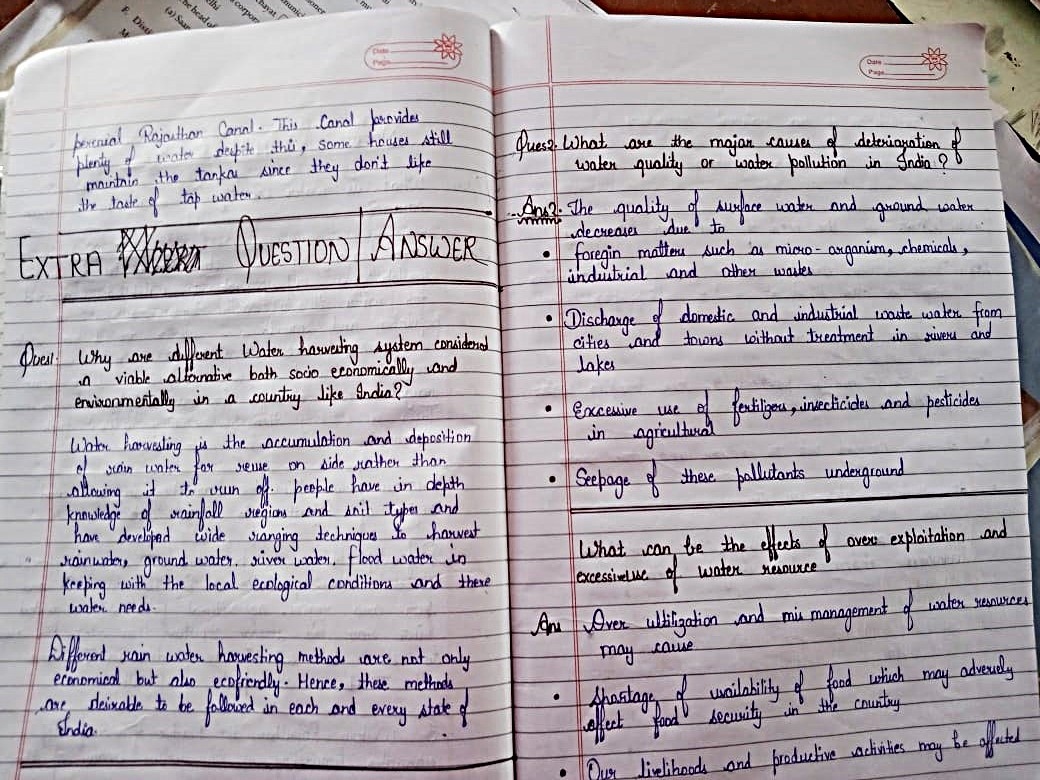 perenial Rajasthan Canal. This Canal parovides
plenty of water despite this, some houses still
maintain the tankas since they don't like
the taste of tap water.
EXTRA QUESTION/ANSWER
Ques1. Why are different Water harvesting system considered
a viable alternative both socio economically and
environmentally in a country like India?
Water harvesting is the accumulation and deposition
of rain water for reuse on side rather than
allowing it to run off. people have in depth
knowledge of rainfall regions and soil types and
have developed wide ranging techniques to harvest
rainwater, ground water, river water, flood water in
keeping with the local ecological conditions and there
water needs.
Different rain water harvesting methods are not only
economical but also ecofriendly. Hence, these methods
are deirable to be followed in each and every state of
India.
Date
Page
Ques2. What are the major causes of deterioration of
water quality or water pollution in India?
Ans2. The quality of surface water and ground water
decreases due to
• foregin matters such as micro-organism, chemicals,
industrial and other wastes
• Discharge of domestic and industrial waste water from
cities and towns without treatment in rivers and
lakes
• Excessive use of fertilizers, insecticides and pesticides
in agricultural
• Seepage of these pollutants underground
What can be the effects of over exploitation and
excessive use of water resource
Ans Over ultilization and mis management of water resources
may cause
• Shortage of availability of food which may adversely
affect food security in the country
• Our livelihoods and productive activities may be affected